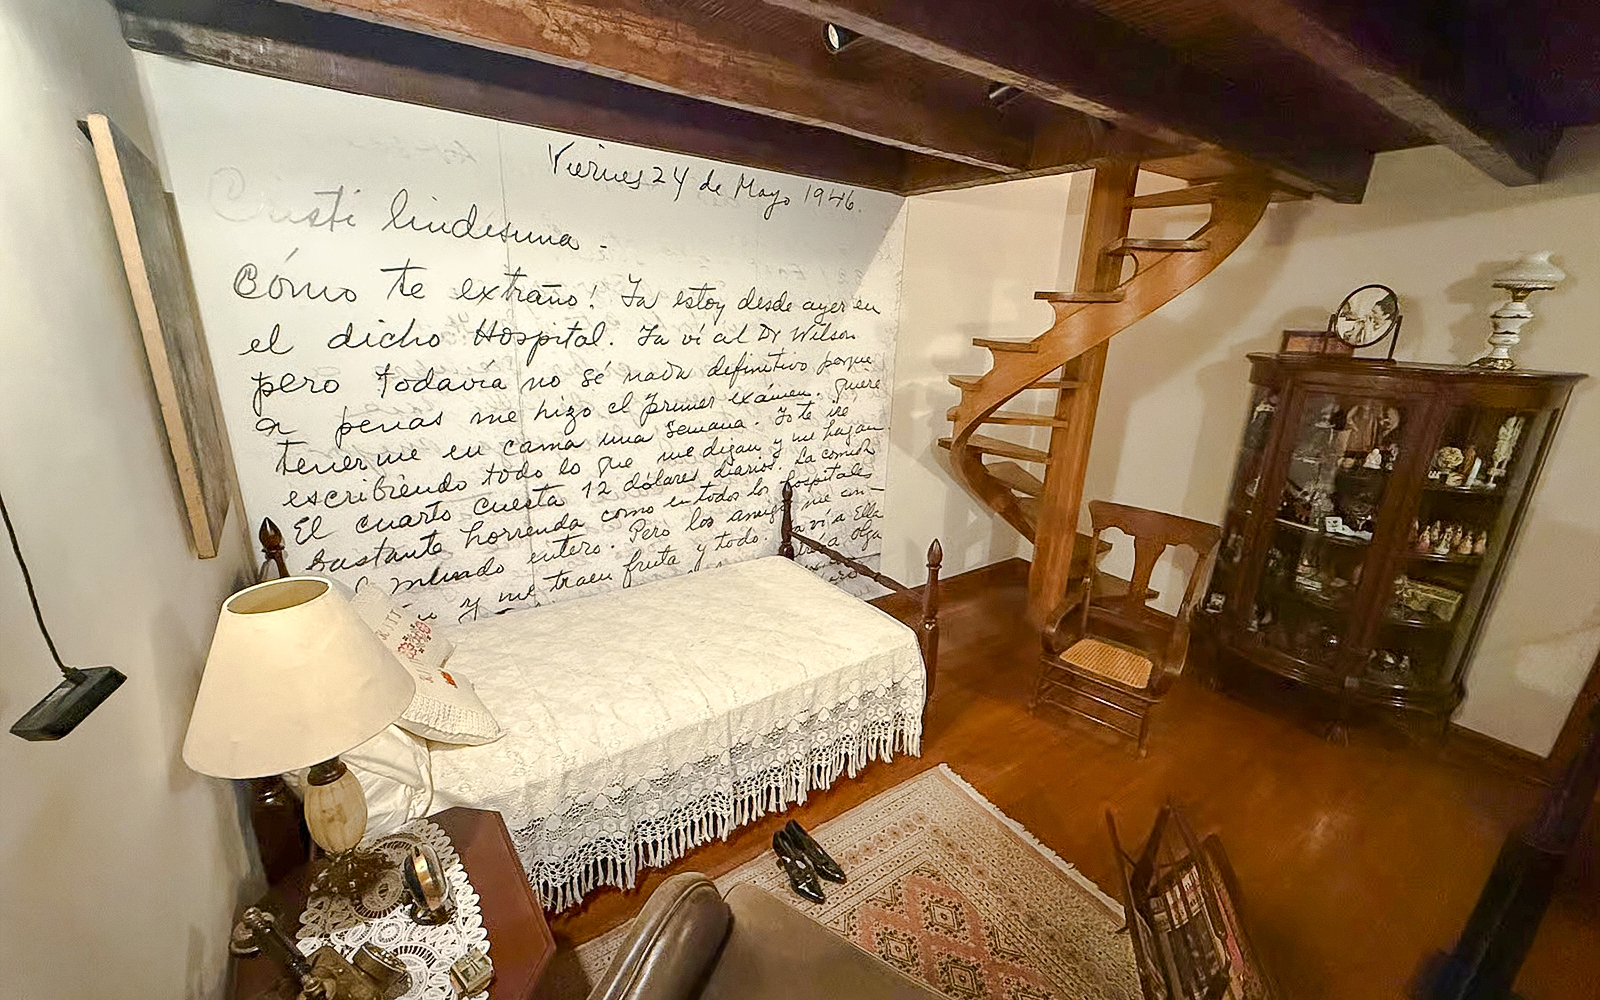 Viernes 24 de Mayo 1946.
Cristi lindisima -
Cómo te extraño! Ya estoy desde ayer en
el dicho Hospital. Ya ví al Dr Wilson
pero todavía no sé nada definitivo porque
a penas me hizo el primer exámen. Quere
tenerme en cama una semana. Yo te ire
escribiendo todo lo que me digan y me hagan
El cuarto cuesta 12 dólares diarios. La comida
bastante horrenda como en todos los hospitales
mundo entero. Pero los amigos me
y me traen fruta y todo. ya ví a Ella
a Olga